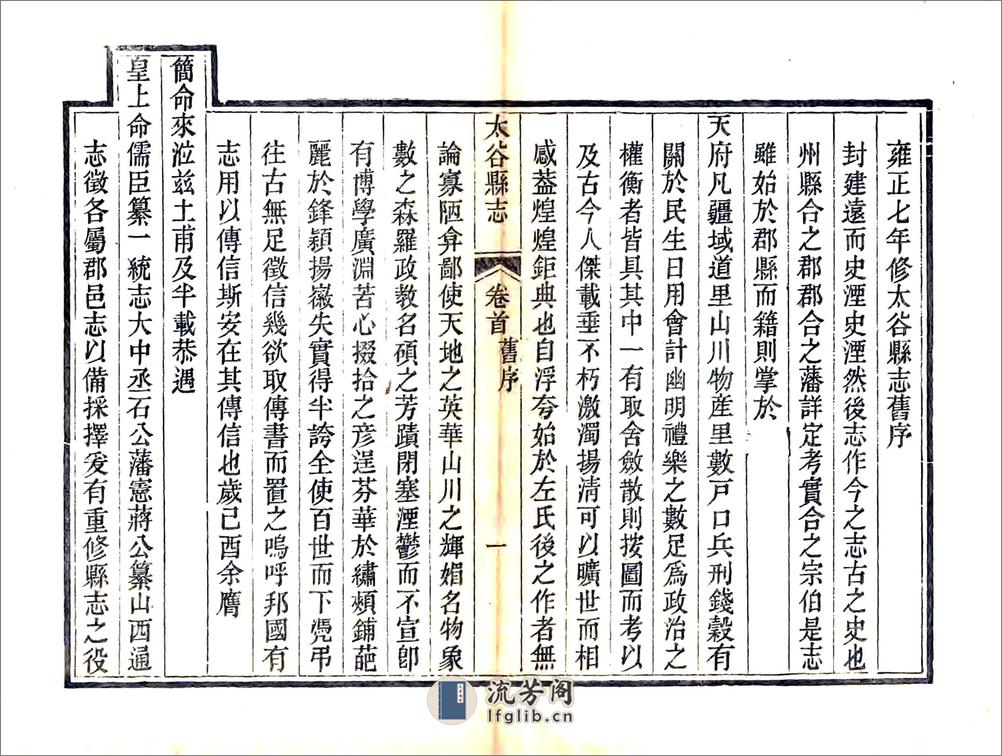 雍正七年修太谷縣志舊序
封建遠而史湮史湮然後志作今之志古之史也
州縣合之郡郡合之藩詳定考實合之宗伯是志
雖始於郡縣而籍則掌於
天府凡疆域道里山川物産里數戸口兵刑錢穀有
關於民生日用會計幽明禮樂之數足爲政治之
權衡者皆具其中一有取舍斂散則按圖而考以
及古今人傑載垂不朽激濁揚清可以曠世而相
感葢煌煌鉅典也自浮夸始於左氏後之作者無
太谷縣志
卷首
舊序
一
論寡陋弇鄙使天地之英華山川之輝媚名物象
數之森羅政教名碩之芳蹟閉塞湮鬱而不宣卽
有博學廣淵苦心掇拾之彦逞芬華於繡頰鋪葩
麗於鋒穎揚㩁失實得半誇全使百世而下凴弔
往古無足徵信幾欲取傳書而置之嗚呼邦國有
志用以傳信斯安在其傳信也歲己酉余膺
簡命來涖兹土甫及半載恭遇
皇上命儒臣纂一統志大中丞石公藩憲蔣公纂山西通
志徵各屬郡邑志以備採擇爰有重修縣志之役
流芳阁
lfglib.cn